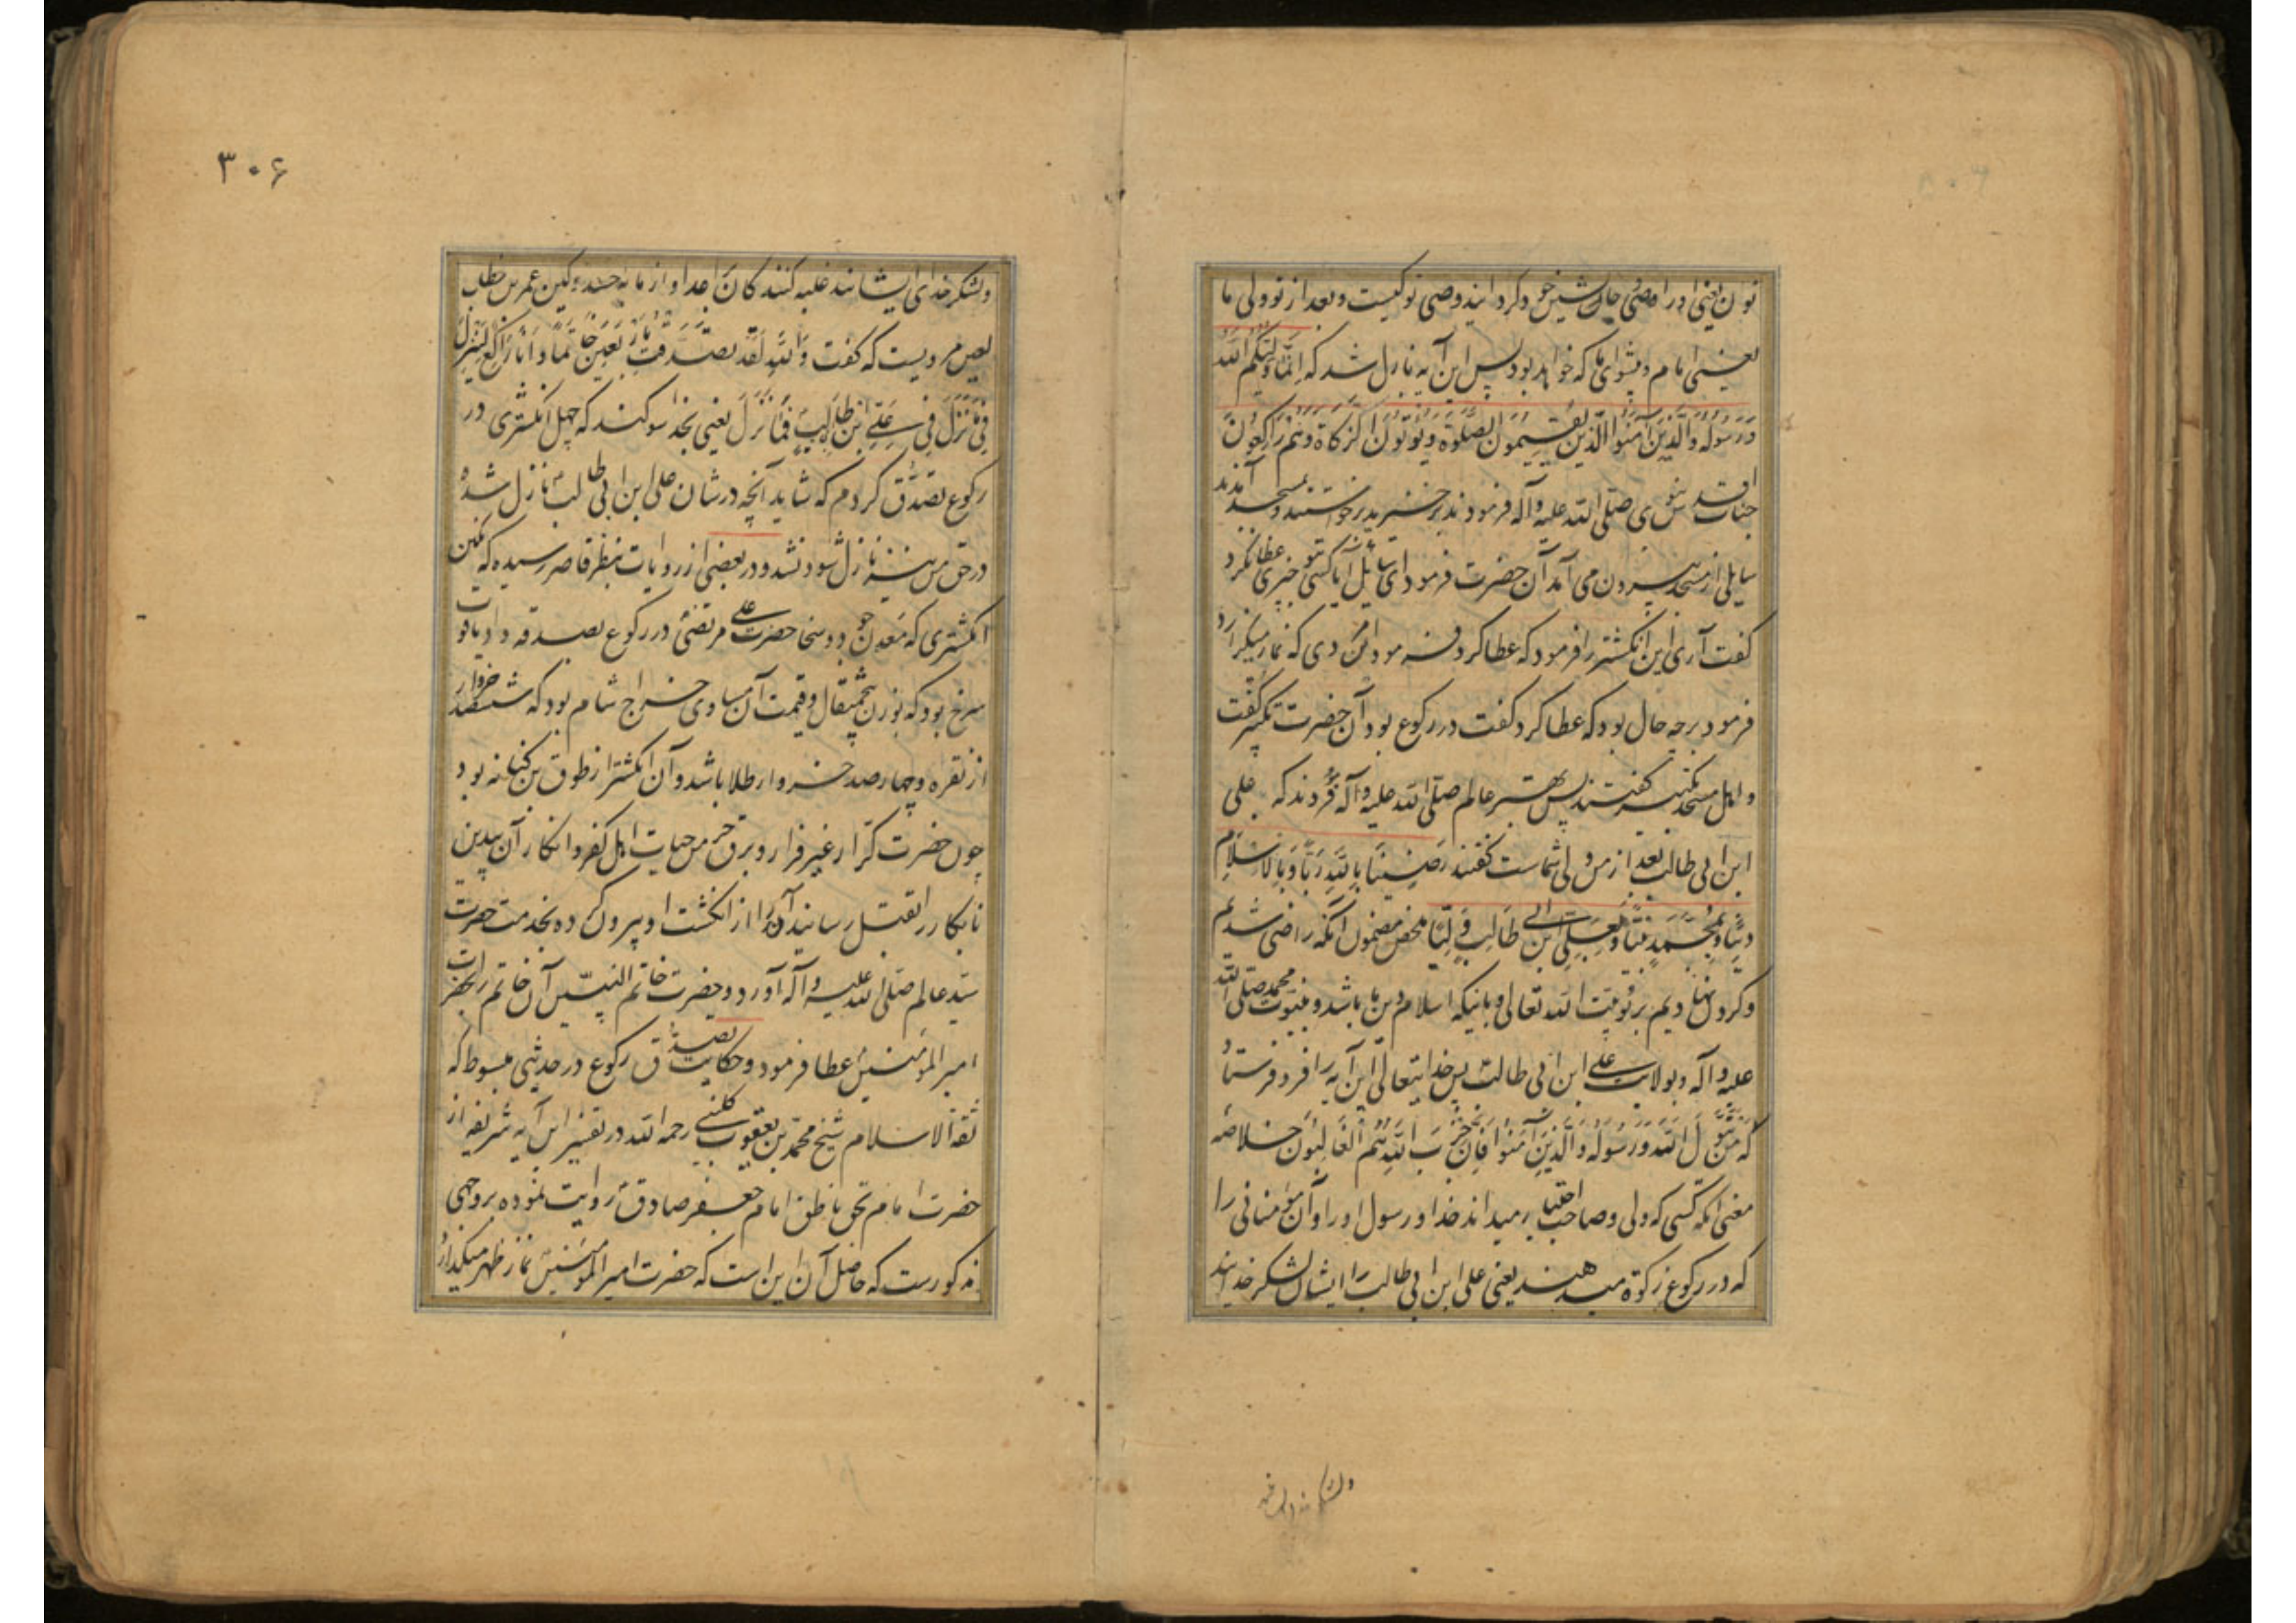 نون یعنی او را وصی و جانشین خود کردانید وصی تو کیست و بعد از تو ولی ما
یعنی امام و پیشوای ما که خواهد بود پس این آیه نازل شد که اِنَّما وَلیُّکُم الله
وَرَسُولُه وَالَّذینَ آمَنُوا الَّذینَ یُقیمُونَ الصَّلوة وَیُؤتُونَ الزَّکاة وَهُم راکِعُونَ
جناب اقدس نبوی صلی الله علیه وآله فرمودند برخیزید برخواستند و بمسجد آمدند
سایلی از مسجد بیرون می آمد آن حضرت فرمود ای سایل آیا کسی بتو چیزی عطا نکرد
کفت آری این انکشتر را فرمود که عطا کرد فرمود این مردی که نماز میکزارد
فرمود برچه حال بود که عطا کرد کفت در رکوع بود آن حضرت تکبیر کفت
و اهل مسجد تکبیر کفتند پس بهتر عالم صلی الله علیه وآله فرمودند که علی
ابن ابی طالب بعد از من ولی شماست کفتند رَضینَا بِاللهِ رَبًّا وَبِالاسلامِ
دینًا وَبِمُحَمَّدٍ نَبیًّا وَبِعَلِیِّ ابن ابی طالِبٍ وَلِیًّا مخلص مضمون آنکه راضی شدیم
و کردن نهادیم بربوبیت الله تعالی و باینکه اسلام دین ما باشد و بنبوت محمد صلی الله
علیه وآله و بولایت علی ابن ابی طالب پس خدایتعالی این آیه را فرو فرستاد
که مَن یَتَوَلَّ الله وَرَسُولَه وَالَّذینَ آمَنُوا فَاِنَّ حِزبَ اللهِ هُم الغالِبُونَ خلاصه
معنی آنکه کسی که ولی و صاحب اختیار میداند خدا و رسول او را و آن مؤمنانی را
که در رکوع زکوة میدهند یعنی علی ابن ابی طالب را ایشان لشکر خدایند
ولشکر خدای
۳۰۶
ولشکر خدای ایشانند غلبه کنندکان اعدا و از مایه حسد و کین عمر بن خطاب
لعین مرویست که کفت وَاللهِ لَقَد تَصَدَّقتُ بِاَربَعینَ خاتَمًا وَاَنَا راکِع لِیَنزِلَ
فِیَّ ما نَزَلَ فی عَلیِّ ابن ابی طالِبٍ فَما نَزَلَ یعنی بخدا سوکند که چهل انکشتری در
رکوع تصدّق کردم که شاید آنچه در شان علی ابن ابی طالب نازل شده
در حق من نیز نازل شود نشد و در بعضی از روایات بنظر قاصر رسیده که نکین
انکشتری که معدن جود و سخا حضرت علی مرتضی در رکوع بصدقه داد یاقوت
سرخ بود که بوزن پنجمثقال و قیمت آن مساوی خراج شام بود که ششصد خروار
از نقره و چهارصد خروار طلا باشد و آن انکشتر از طوق بن کنانه بود
چون حضرت کرّار غیر فرار و برق خرمن حیات اهل کفر و انکار آن بیدین
نابکار را بقتل رسانید آن را از انکشت او بیرون کرده بخدمت حضرت
سیّد عالم صلی الله علیه وآله آورد و حضرت خاتم النبیّین آن خاتم را بحضرت
امیر المؤمنین عطا فرمود و حکایت تصدّق رکوع در حدیثی مبسوط که
ثقة الاسلام شیخ محمّد بن یعقوب کلینی رحمه الله در تفسیر این آیه شریفه از
حضرت امام بحق ناطق امام جعفر صادق روایت نموده بر وجهی
مذکورست که حاصل آن این است که حضرت امیر المؤمنین نماز ظهر میکذارد